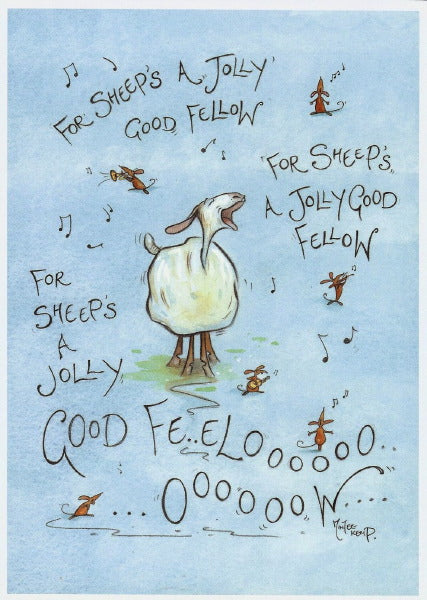 FOR SHEEP'S A JOLLY
GOOD FELLOW
FOR SHEEP'S
A JOLLY GOOD
FELLOW
FOR
SHEEP'S
A
JOLLY
GOOD FE..ELOOOOOO..
....OOOOOOW....
MINTEE
KEMP.